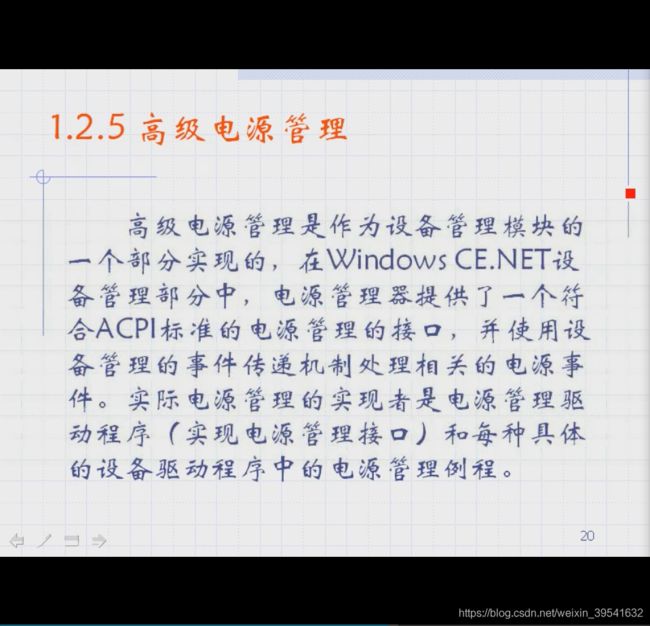 1.2.5 高级电源管理
高级电源管理是作为设备管理模块的
一个部分实现的，在Windows CE.NET设
备管理部分中，电源管理器提供了一个符
合ACPI标准的电源管理的接口，并使用设
备管理的事件传递机制处理相关的电源事
件。实际电源管理的实现者是电源管理驱
动程序（实现电源管理接口）和每种具体
的设备驱动程序中的电源管理例程。
20
https://blog.csdn.net/weixin_39541632